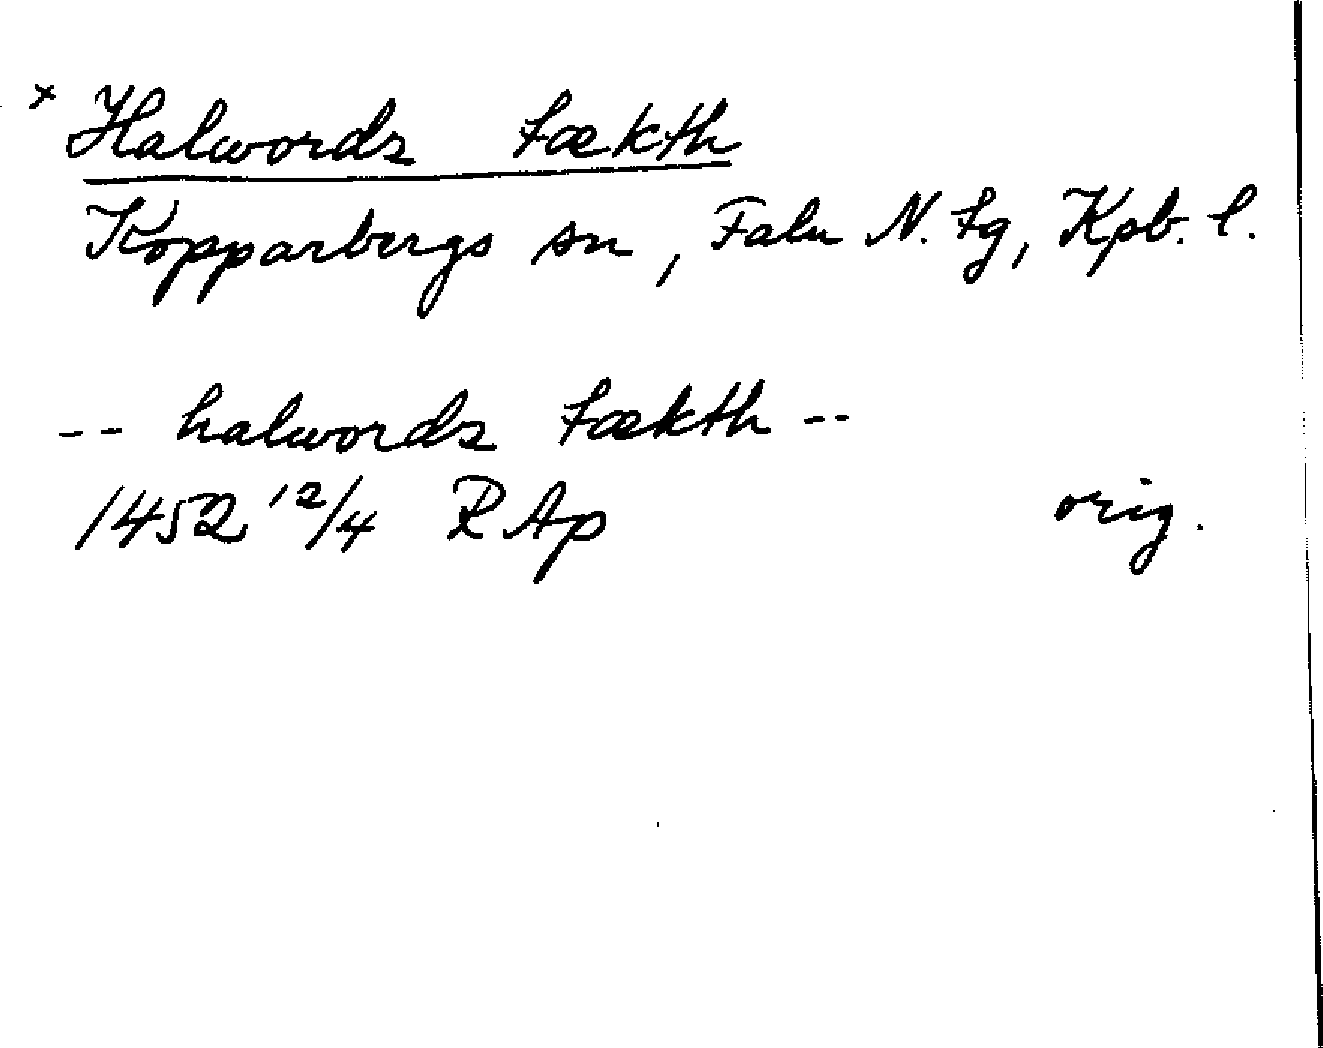 × Halwordz tækth
Kopparbergs sn, Falu N. tg, Kpb. l.
-- halwordz tækth --
1452 12/4 RAp orig.